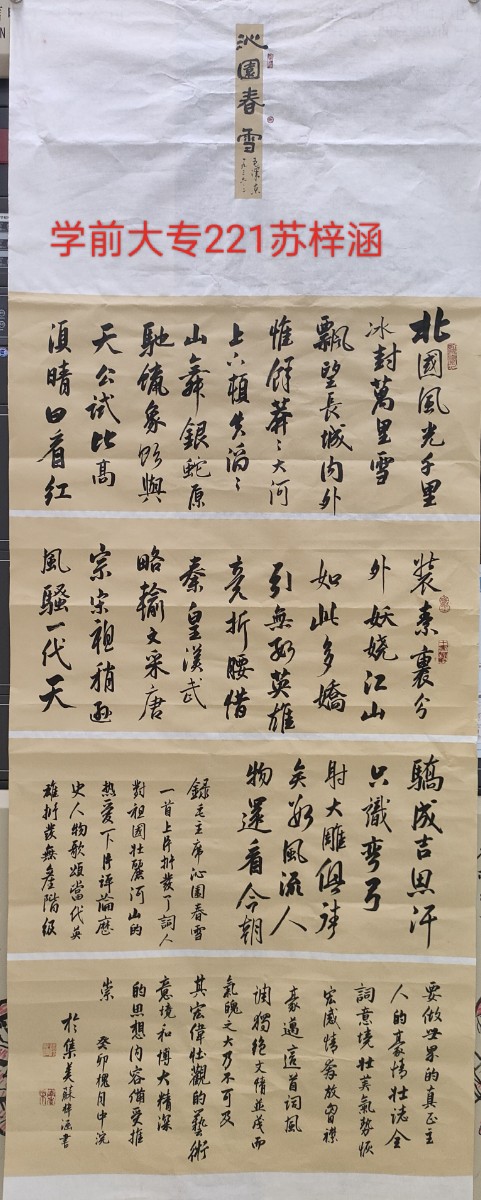 沁園春雪
一九三六.二
学前大专221苏梓涵
北國風光千里
冰封萬里雪
飄望長城内外
惟餘莽〻大河
上下頓失滔〻
山舞銀蛇原
馳蠟象欲與
天公試比高
須晴日看紅
裝素裹分
外妖嬈江山
如此多嬌
引無數英雄
竞折腰惜
秦皇漢武
略輸文采唐
宗宋祖稍遜
風騷一代天
驕成吉思汗
只識彎弓
射大雕俱往
矣數風流人
物還看今朝
錄毛主席沁園春雪
一首上片抒發了詞人
對祖國壯麗河山的
熱愛下片評論歷
史人物歌頌當代英
雄抒發無產階級
要做世界的真正主
人的豪情壯志全
詞意境壯美氣勢恢
宏感情奔放胸襟
豪邁這首詞風
调獨绝文情並茂而
氣魄之大乃不可及
其宏偉壯觀的藝術
意境和博大精深
的思想内容備受推
崇
癸卯槐月中浣
於集美蘇梓涵書